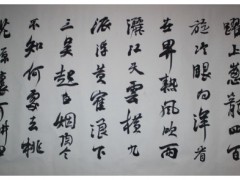 躍上葱蘢四百
旋冷眼向洋看
世界熱風吹雨
灑江天雲橫九
派浮黃鶴浪下
三吳起白煙
不知何處去桃
花源裏可耕